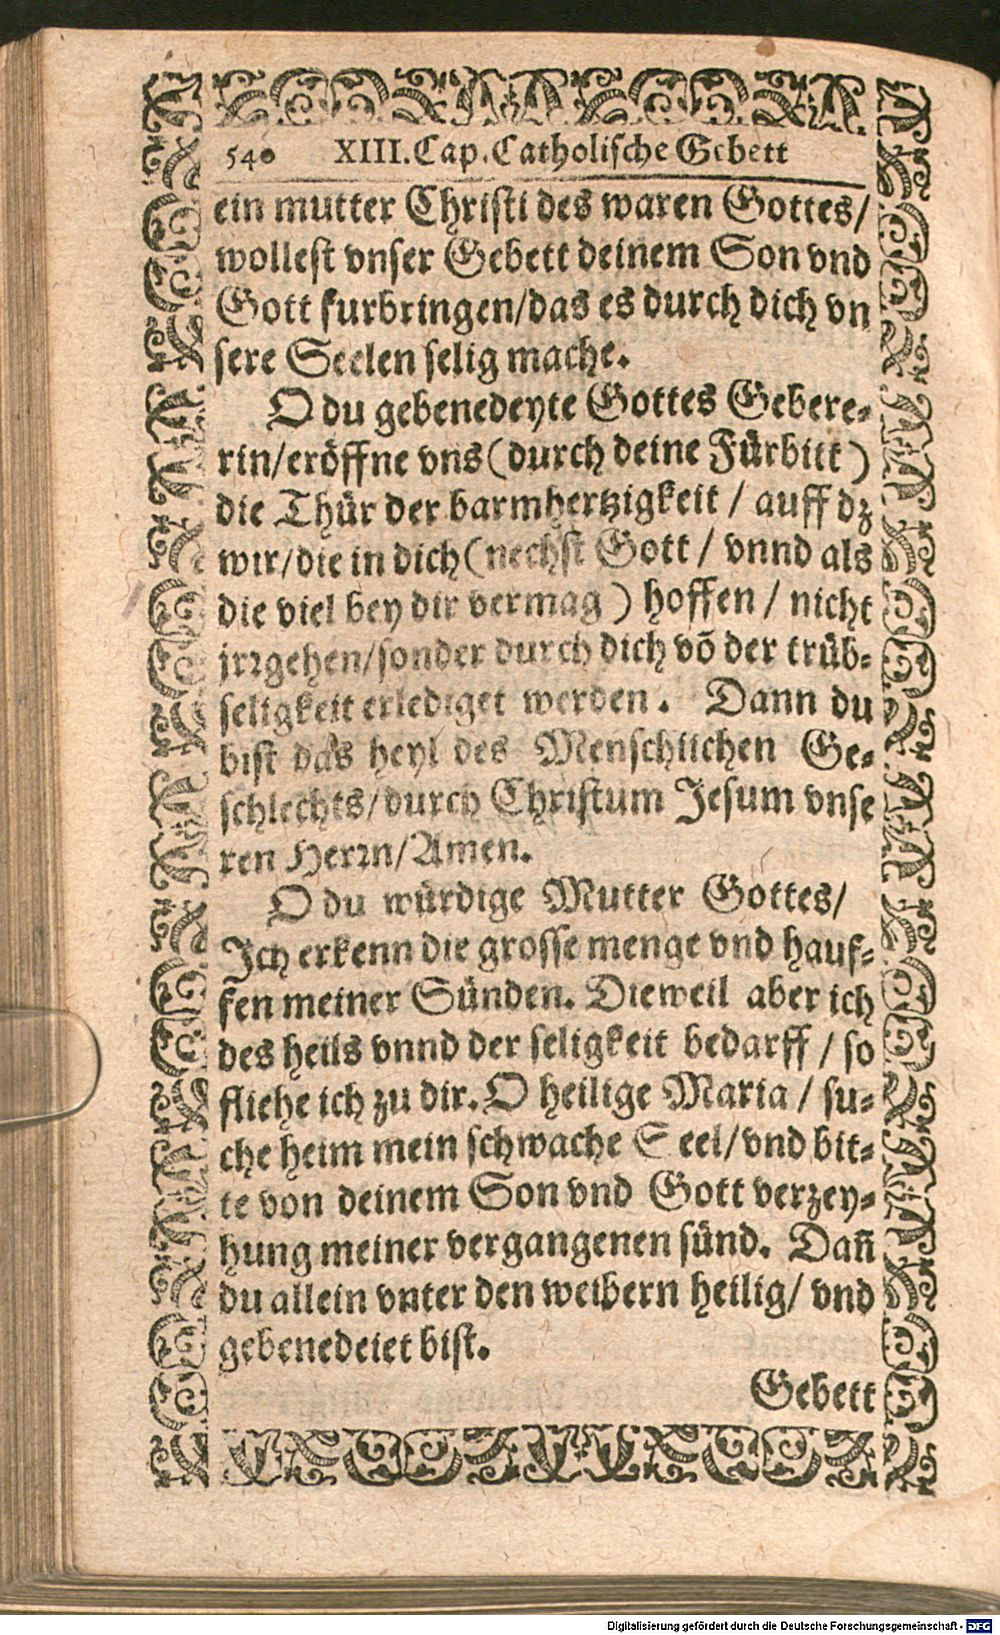 540 XIII. Cap. Catholische Gebett
ein mutter Christi des waren Gottes/
wollest vnser Gebett deinem Son vnd
Gott furbringen/das es durch dich vn
sere Seelen selig mache.
O du gebenedeyte Gottes Gebere-
rin/eröffne vns (durch deine Fürbitt)
die Thür der barmhertzigkeit / auff dz
wir/die in dich (nechst Gott / vnnd als
die viel bey dir vermag) hoffen / nicht
jrrgehen/sonder durch dich võ der trüb-
seligkeit erlediget werden. Dann du
bist das heyl des Menschlichen Ge-
schlechts/durch Christum Jesum vnse
ren Herrn/Amen.
O du würdige Mutter Gottes/
Ich erkenn die grosse menge vnd hauf-
fen meiner Sünden. Dieweil aber ich
des heils vnnd der seligkeit bedarff / so
fliehe ich zu dir. O heilige Maria / su-
che heim mein schwache Seel/vnd bit-
te von deinem Son vnd Gott verzey-
hung meiner vergangenen sünd. Dañ
du allein vnter den weibern heilig/ vnd
gebenedeiet bist.
Gebett
Digitalisierung gefördert durch die Deutsche Forschungsgemeinschaft - DFG